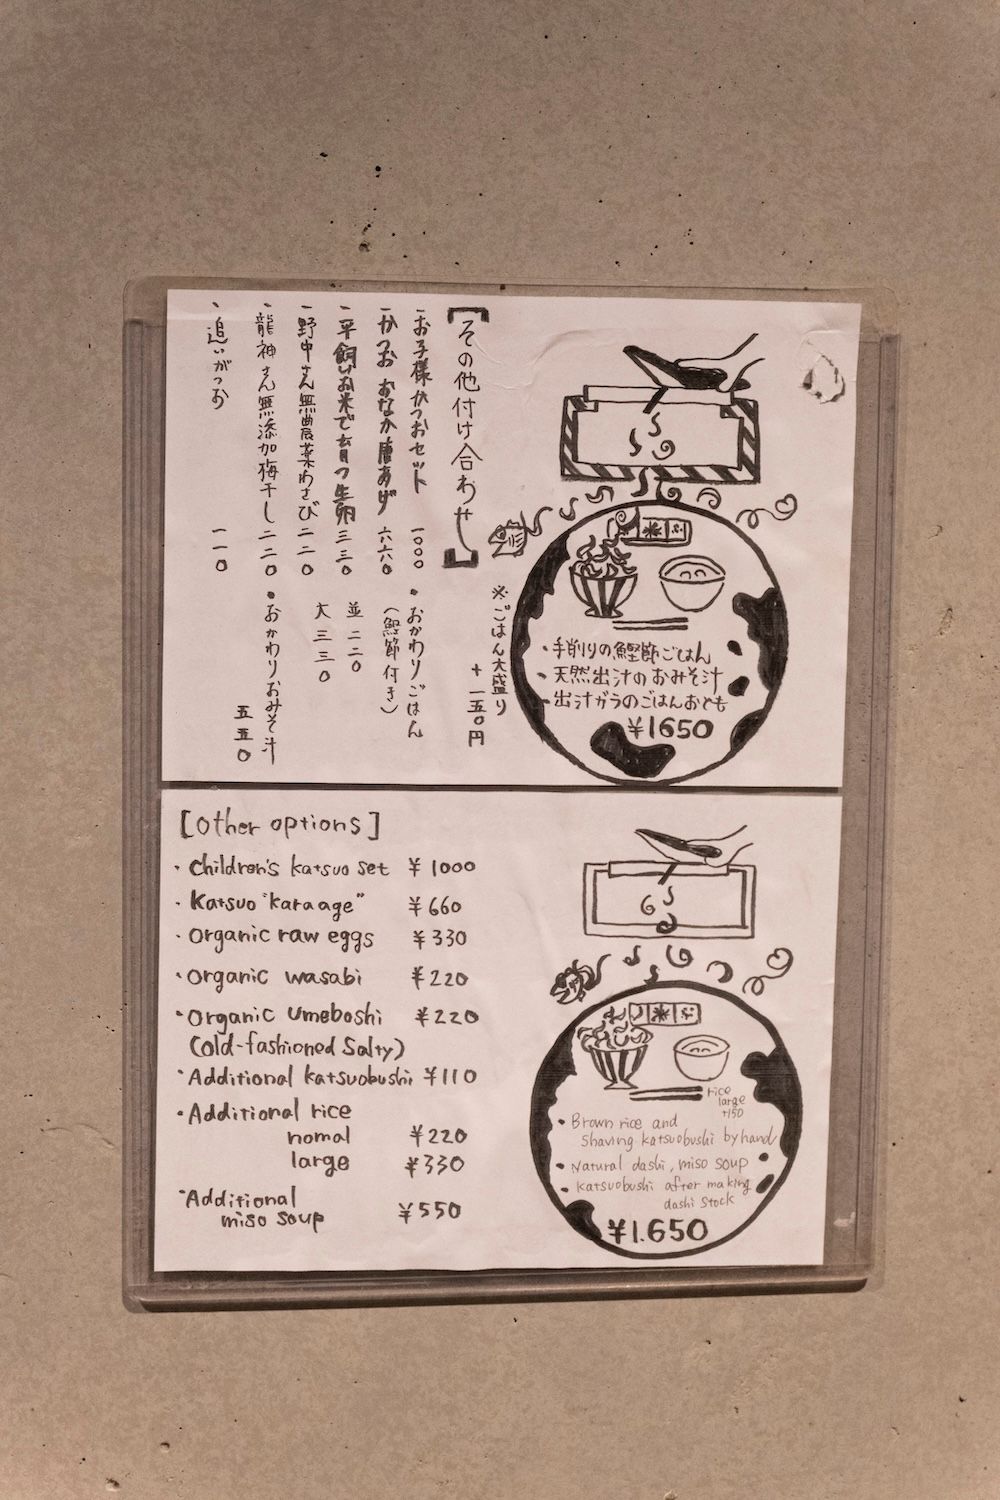 [その他付け合わせ]
・お子様かつおセット 一〇〇〇
・かつおおなか唐あげ 六六〇
・平飼いお米で育つ生卵 三三〇
・野中さん無農薬わさび 二二〇
・龍神さん無添加梅干し 二二〇
・追いがつお 一一〇
※ごはん大盛り
+一五〇円
・おかわりごはん
(鰹節付き)
並 二二〇
大 三三〇
・おかわりおみそ汁
五五〇
・手削りの鰹節ごはん
・天然出汁のおみそ汁
・出汁ガラのごはんおとも
¥1650
[Other options]
・Children's katsuo set ¥1000
・Katsuo "karaage" ¥660
・Organic raw eggs ¥330
・Organic wasabi ¥220
・Organic Umeboshi ¥220
(old-fashioned Salty)
・Additional katsuobushi ¥110
・Additional rice
nomal ¥220
large ¥330
・Additional
miso soup ¥550
rice
large
+150
・Brown rice and
Shaving katsuobushi by hand
・Natural dashi, miso soup
・katsuobushi after making
dashi stock
¥1.650